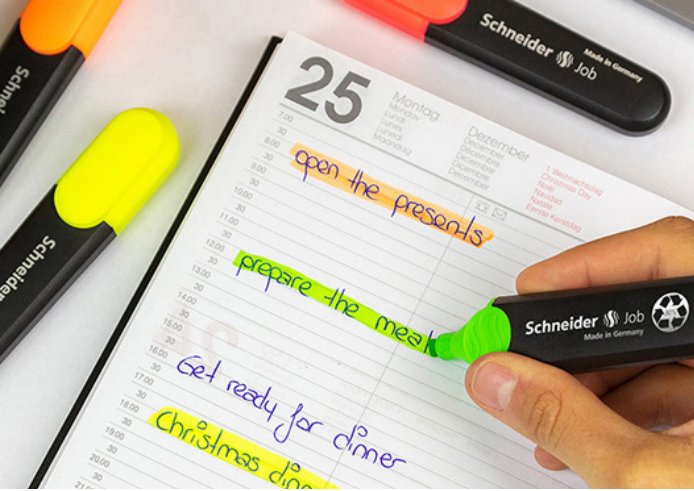 Schneider Job
Made in Germany
25
Montag
Monday
Lundi
Lunes
Lunedì
Maandag
Dezember
December
Décembre
Diciembre
Dicembre
December
1. Weihnachtstag
Christmas Day
Noël
Navidad
Natale
Eerste Kerstdag
7.00
30
8.00
30
9.00
30
10.00
30
11.00
30
12.00
30
13.00
30
14.00
30
15.00
30
16.00
30
17.00
30
18.00
30
19.00
30
20.00
30
open the presents
prepare the meat
Get ready for dinner
Christmas
Schneider Job
Made in Germany
Schneider